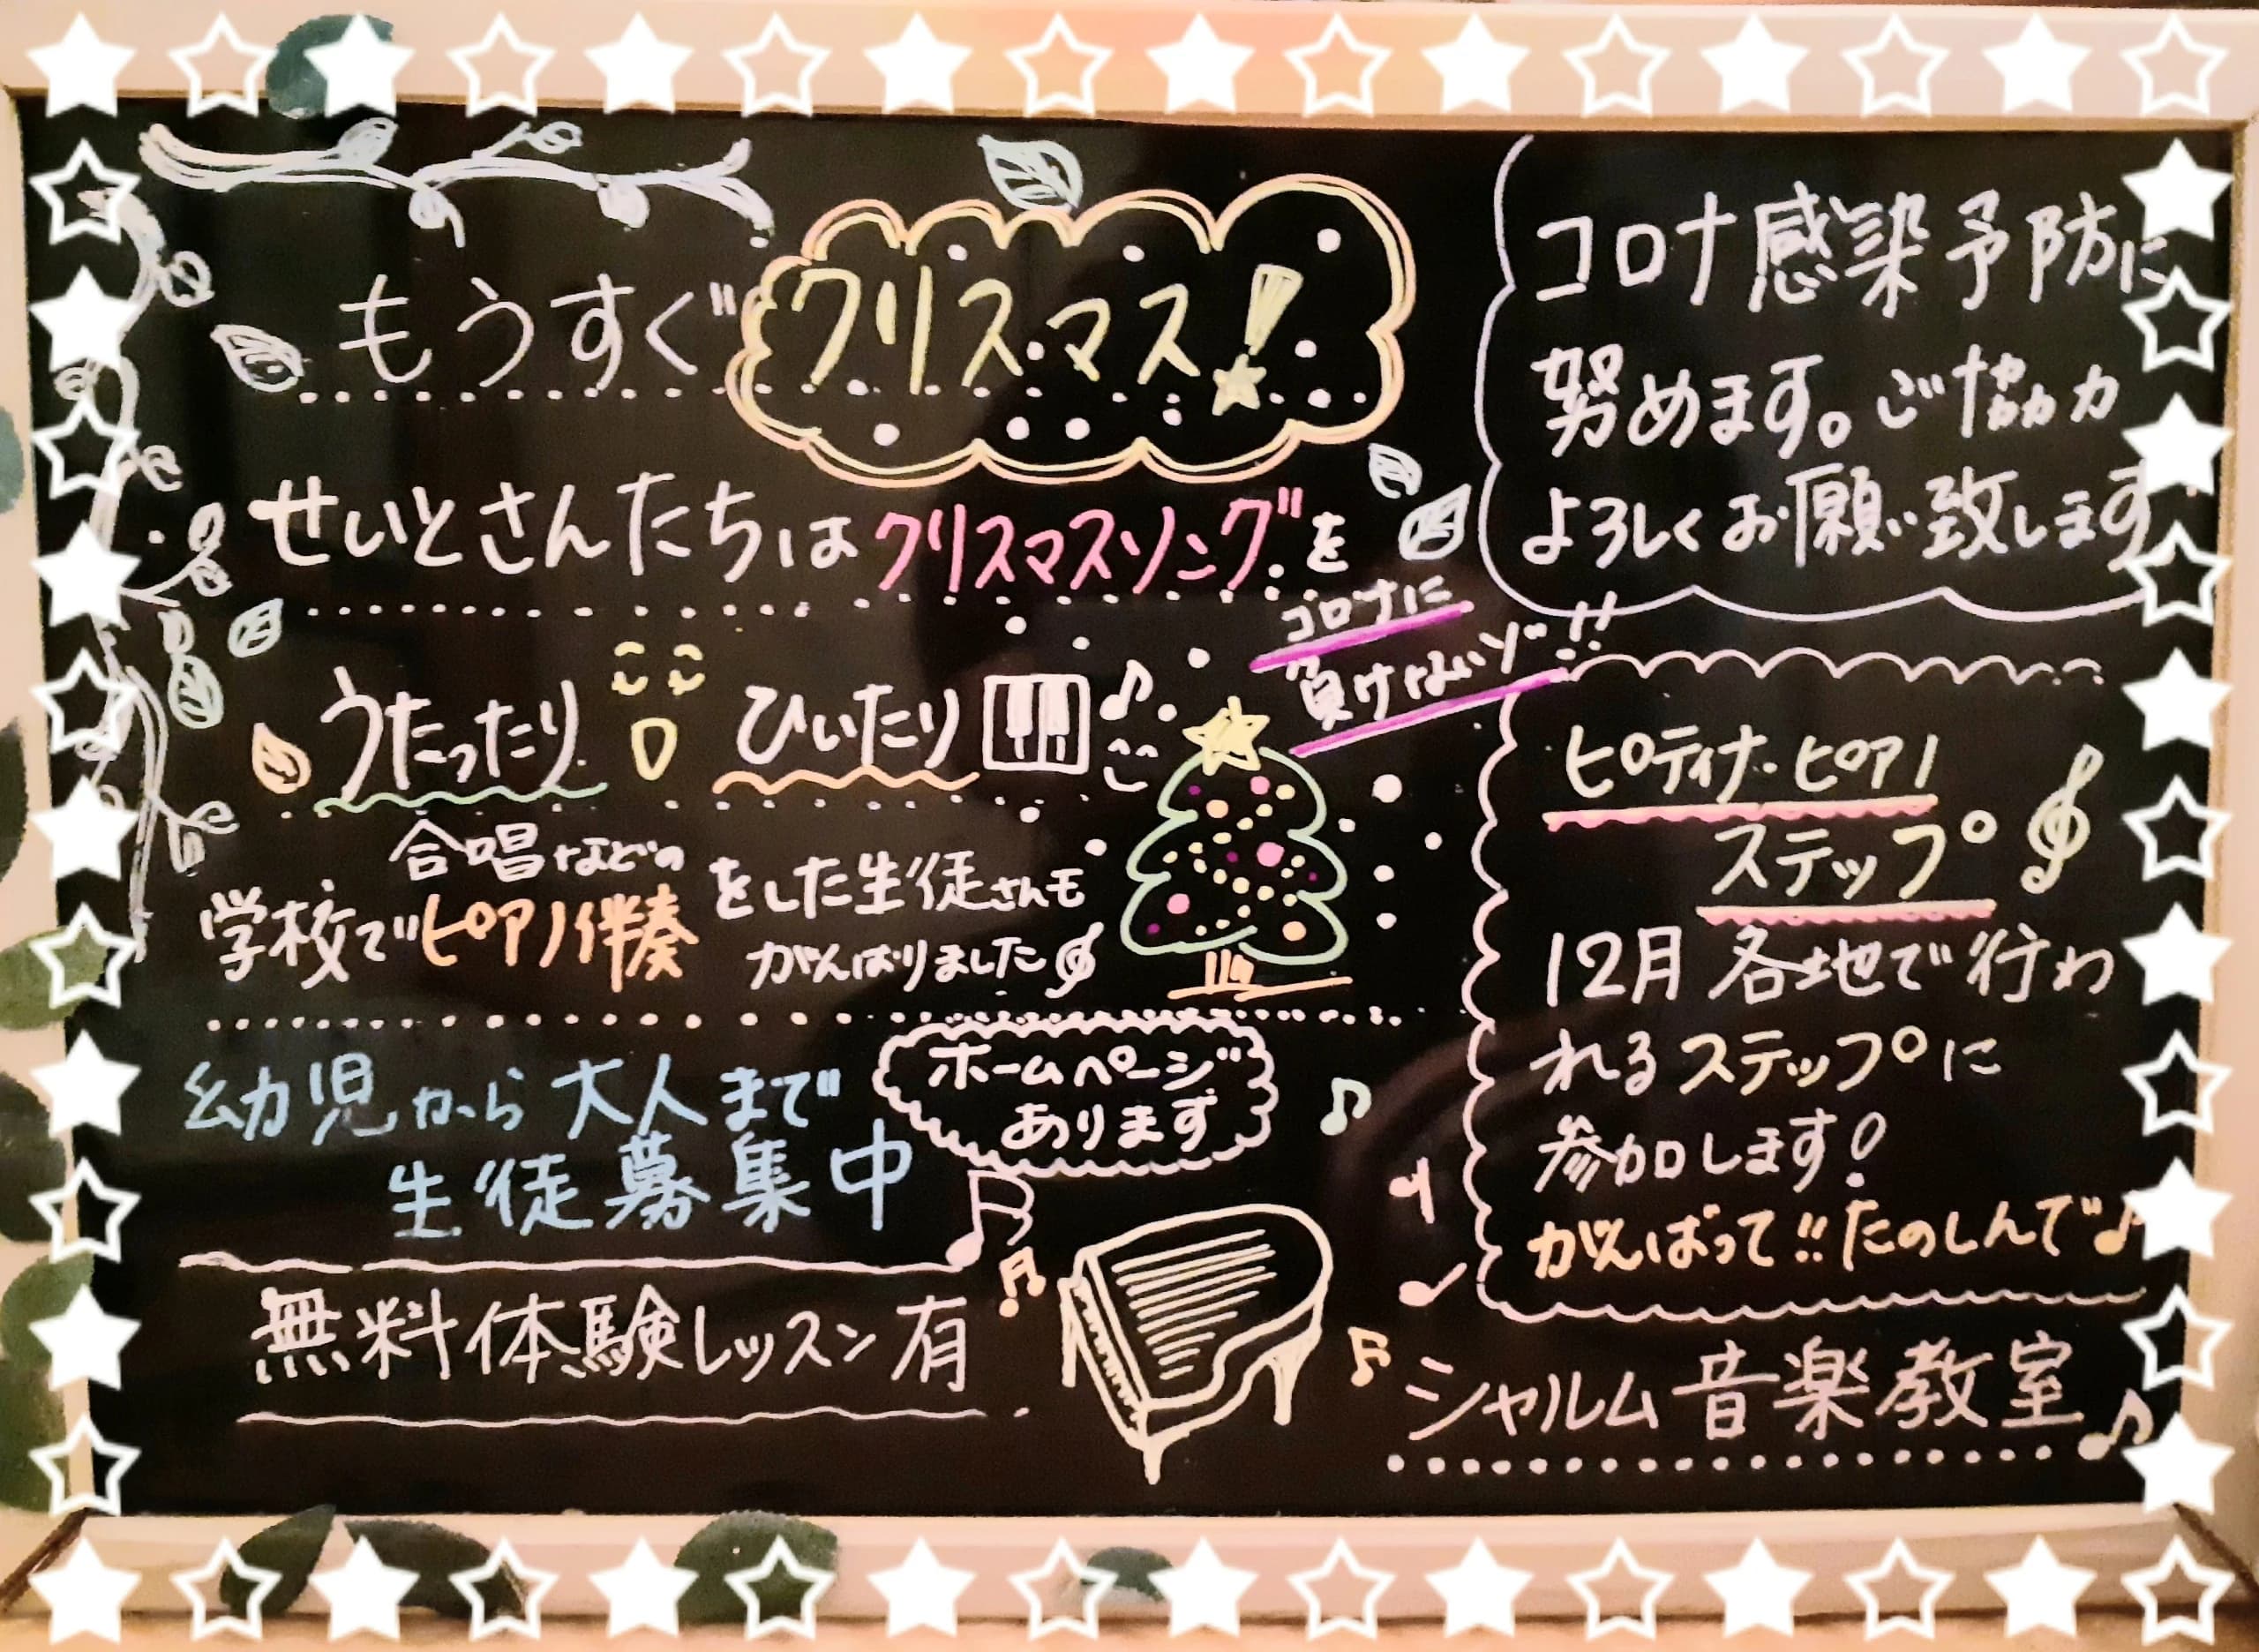 もうすぐクリスマス!
せいとさんたちはクリスマスソングを
うたったり ひいたり
コロナに
負けないゾ!!
合唱などの
学校でピアノ伴奏をした生徒さんも
がんばりました
幼児から大人まで
生徒募集中
ホームページ
あります
無料体験レッスン有
コロナ感染予防に
努めます。ご協力
よろしくお願い致します
ピティナ・ピアノ
ステップ
12月各地で行わ
れるステップに
参加します!
がんばって!!たのしんで♪
シャルム音楽教室